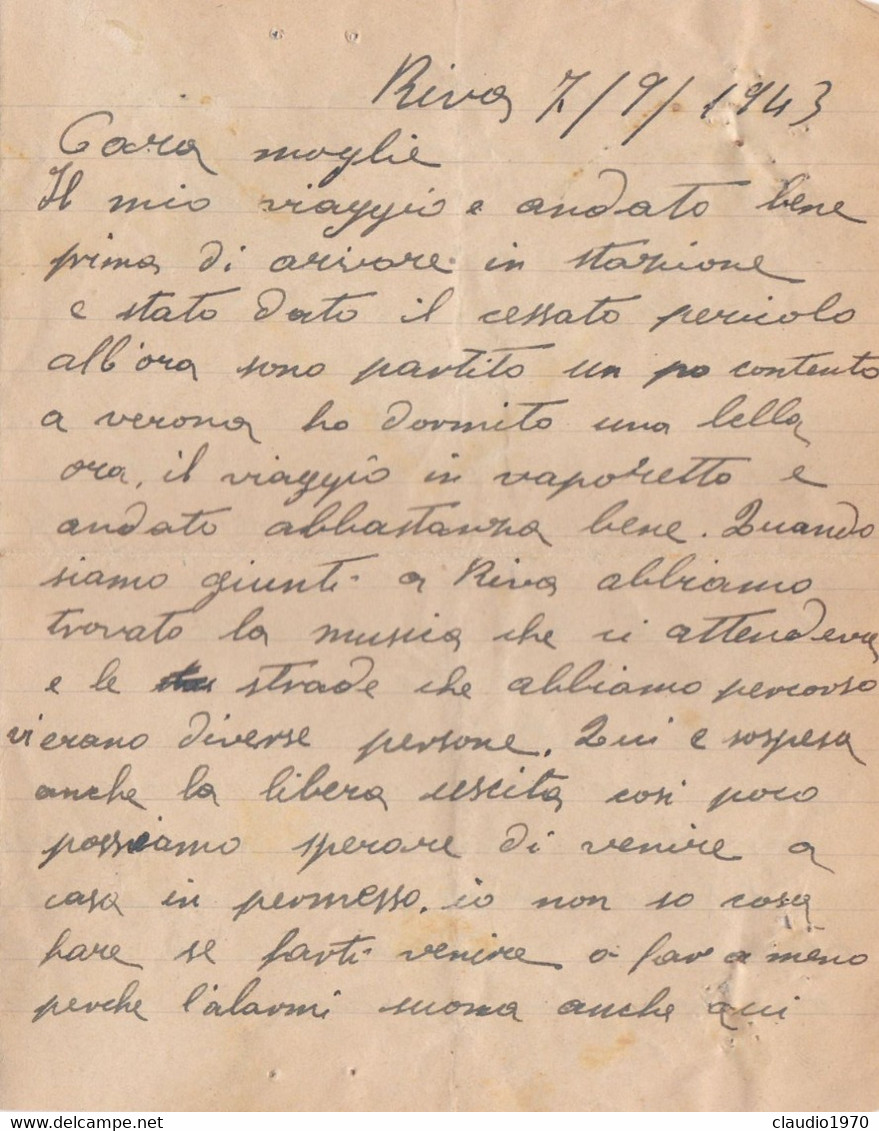 Riva 7/9/1943
Cara moglie
Il mio viaggio e andato bene
prima di arivare in stazione
e stato dato il cessato pericolo
all'ora sono partito un po contento
a verona ho dormito una bella
ora, il viaggio in vaporetto e
andato abbastanza bene. Quando
siamo giunti a Riva abbiamo
trovato la musica che ci attendeva
e le strade che abbiamo percorso
vi erano diverse persone. Qui e sospesa
anche la libera uscita cosi poco
possiamo sperare di venire a
casa in permesso. io non so cosa
fare se farti venire o far a meno
perche l'alarmi suona anche qui
www.delcampe.net
claudio1970